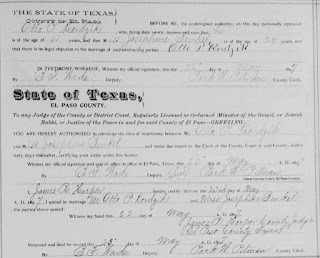 THE STATE OF TEXAS,
COUNTY OF EL PASO
BEFORE ME, the undersigned authority, on this day personally appeared
Otto P. Kordzik who, being duly sworn, deposes and says that he
is of the age of years, and that Miss Josephine is of the age of years,
and that there is no legal objection to the marriage of said contracting parties. Otto P. Kordzik
IN TESTIMONY WHEREOF, Witness my official signature, this the day of May 1
By Wade Deputy. Park W. Pitman County Clerk.
State of Texas,
EL PASO COUNTY.
To any Judge of the County or District Court, Regularly Licensed or Ordained Minister of the Gospel, or Jewish
Rabbi, or Justice of the Peace in and for said County of El Paso—GREETING:
YOU ARE HEREBY AUTHORIZED to solemnize the rites of matrimony between Mr. Otto P. Kordzik
and Miss Josephine and make due return to the Clerk of the County Court of said County, within
sixty days thereafter, certifying your action under this license.
Witness my official signature and seal of office at office in El Paso, Texas, the 22 day of May
By Wade Deputy. Park W. Pitman
I, James R. Harper hereby certify that on the 22nd day of May
A. D. 1 I united in marriage Mr Otto P. Kordzik and Miss Josephine
the parties above named.
Witness my hand this 22 day of May
James R. Harper County Judge
El Paso County Texas
Returned and filed for record this day of May
By Wade Deputy. Park W. Pitman County Clerk.